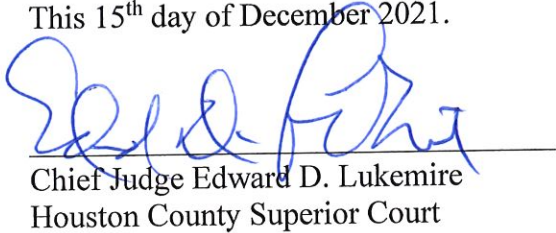 This 15th day of December 2021.
Chief Judge Edward D. Lukemire
Houston County Superior Court